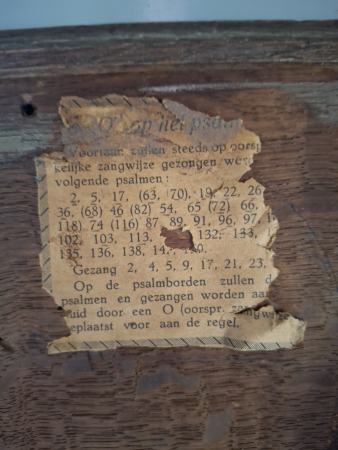 op het psal
Voortaan zullen steeds op oorsp
kelijke zangwijze gezongen wor
volgende psalmen:
2, 5, 17, (63, 70), 19, 22, 26
36, (68) 46 (82) 54, 65 (72) 66,
118) 74 (116) 87, 89, 91, 96, 97, 1
102, 103, 113, 132, 133,
135, 136, 138, 14
Gezang 2, 4, 5, 9, 17, 21, 23,
Op de psalmborden zullen d
psalmen en gezangen worden aa
uid door een O (oorspr. zangw
eplaatst voor aan de regel.